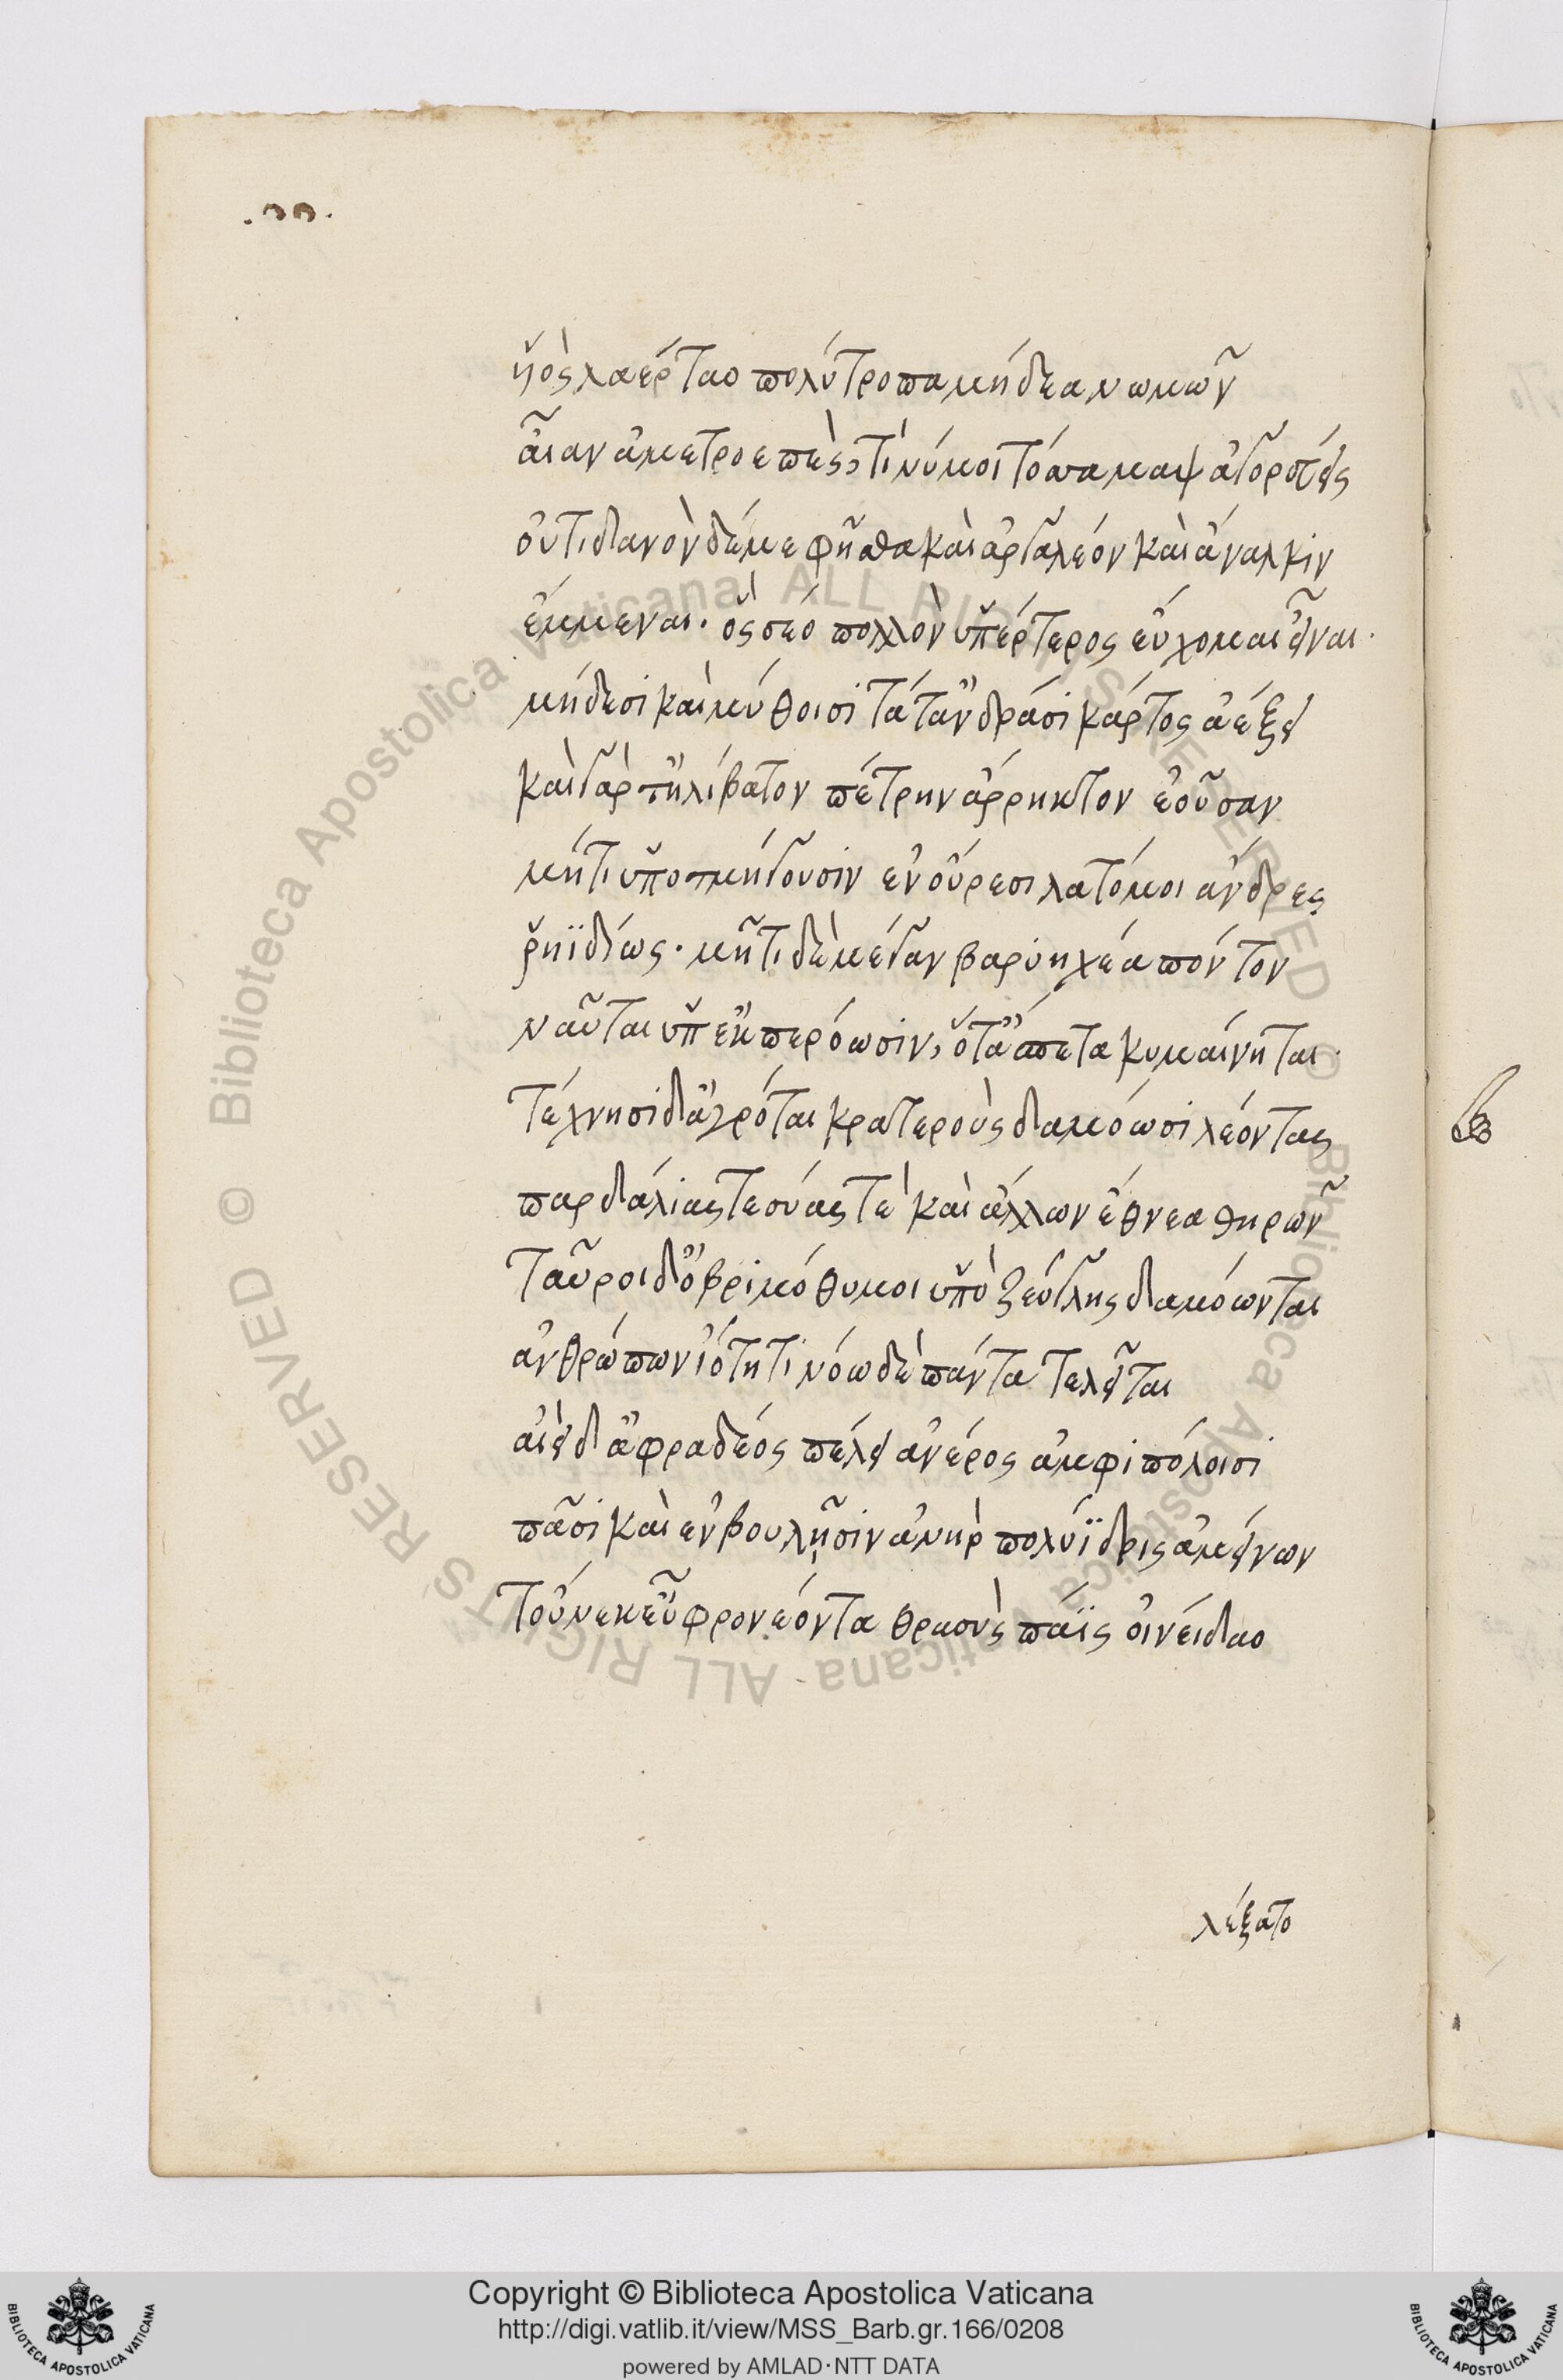 ὑὸς λαέρταο πολύτροπα μήδεα νωμῶν
αἶαν ἀμετροεπὲς, τί νύ μοι τόσα μαψ ἀγορεύεις
οὐτιδανὸν δέ με φῆσθα καὶ ἀργαλέον καὶ ἄναλκιν
ἔμμεναι. ὃς σέο πολλὸν ὑπέρτερος εὔχομαι εἶναι.
μήδεσι καὶ μύθοισι τά τ' ἀνδράσι κάρτος ἀέξει
καὶ γὰρ τ' ἠλίβατον πέτρην ἄρρηκτον ἐοῦσαν
μήτι ὑποτμήγουσιν ἐν οὔρεσι λατόμοι ἄνδρες
ῥηϊδίως. μήτι δὲ μέγαν βαρυηχέα πόντον
ναῦται ὑπεκπερόωσιν, ὅτ' ἄσπετα κυμαίνηται.
τέχνησι δ' ἀγρόται κρατεροὺς δαμόωσι λέοντας
παρδάλιας τε σύας τε καὶ ἄλλων ἔθνεα θηρῶν
ταῦροι δ' ὀβριμόθυμοι ὑπὸ ζεύγλης δαμόωνται
ἀνθρώπων ἰότητι νόω δὲ πάντα τελεῖται
αἰεὶ δ' ἀφραδέος πέλει ἀνέρος ἀμφιπόλοισι
πᾶσι καὶ ἐν βουλῇσιν ἀνὴρ πολύϊδρις ἀμείνων
τούνεκ' ἐϋφρονέοντα θρασὺς πάϊς οἰνείδαο
λέξατο
Copyright © Biblioteca Apostolica Vaticana
http://digi.vatlib.it/view/MSS_Barb.gr.166/0208
powered by AMLAD·NTT DATA